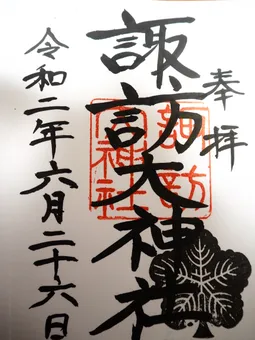 奉拝
諏訪大神社
諏訪
大神社
令和二年六月二十六日